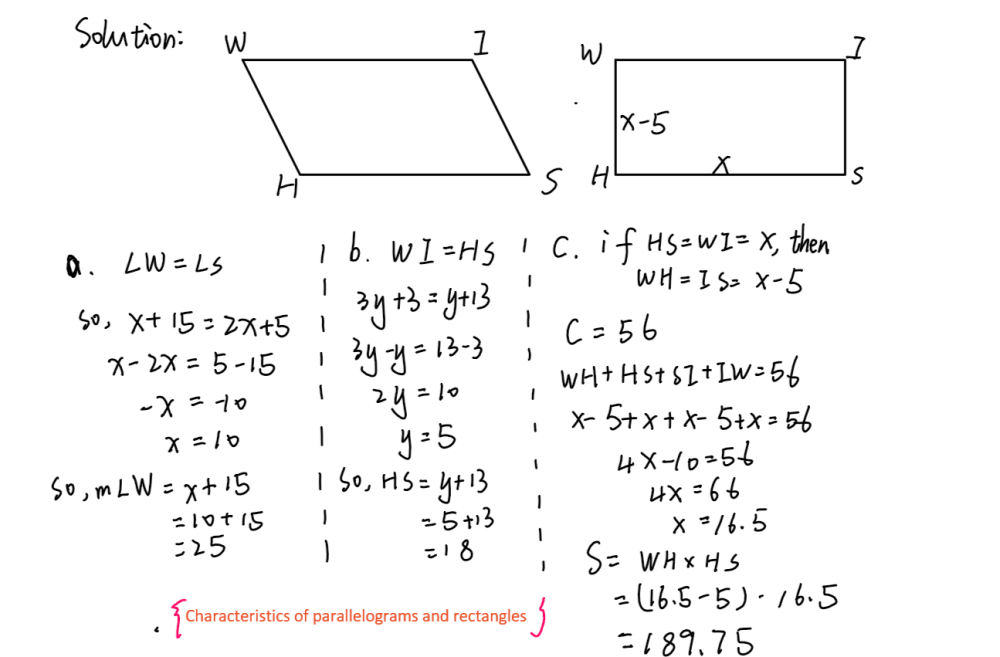 Solution:
W I
H S
W I
x-5
x
H S
a. ∠W = ∠S
so, x+15 = 2x+5
x-2x = 5-15
-x = -10
x = 10
so, m∠W = x+15
= 10+15
= 25
b. WI = HS
3y+3 = y+13
3y-y = 13-3
2y = 10
y = 5
So, HS = y+13
= 5+13
= 18
C. if HS = WI = X, then
WH = IS = x-5
C = 56
WH + HS + SI + IW = 56
x-5+x+x-5+x = 56
4x-10 = 56
4x = 66
x = 16.5
S = WH x HS
= (16.5-5) · 16.5
= 189.75
{Characteristics of parallelograms and rectangles}